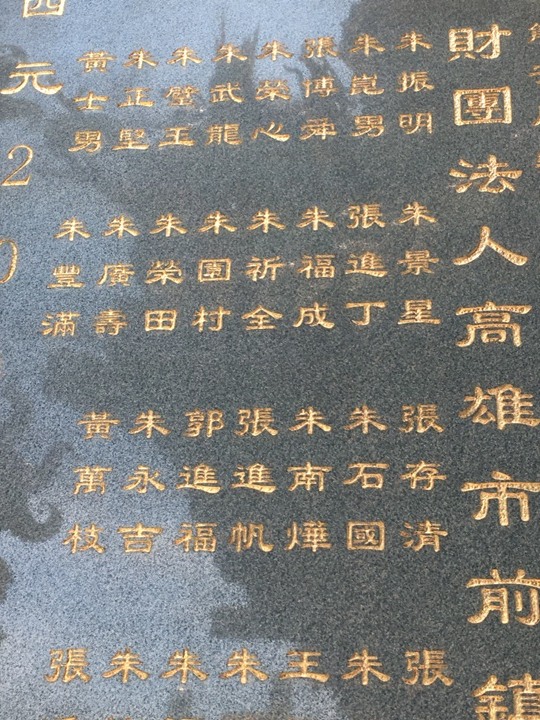 財團法人高雄市前鎮
朱振明
朱崑男
張博舜
朱榮心
朱武龍
朱璧王
朱正堅
黃士男
朱景星
張進丁
朱福成
朱祈全
朱園村
朱榮田
朱廣壽
朱豐滿
張存清
朱石國
朱南燁
張進帆
郭進福
朱永吉
黃萬枝
張
朱
王
朱
朱
朱
張
四元
20